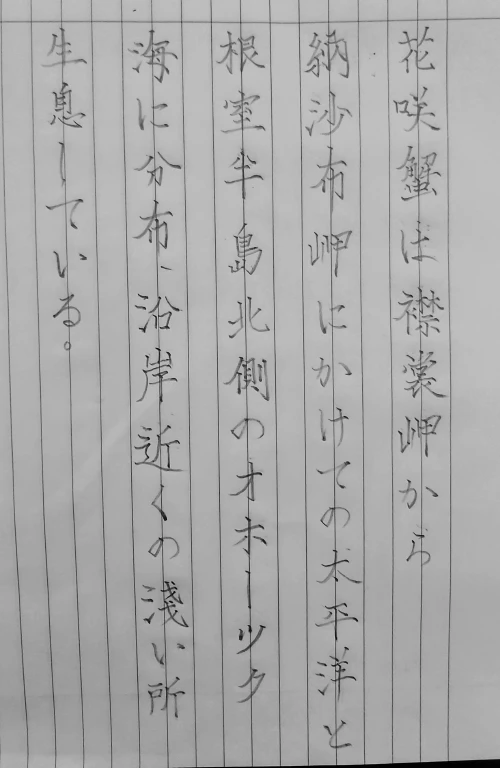 花咲蟹は襟裳岬から
納沙布岬にかけての太平洋と
根室半島北側のオホーツク
海に分布、沿岸近くの淺い所
生息している。